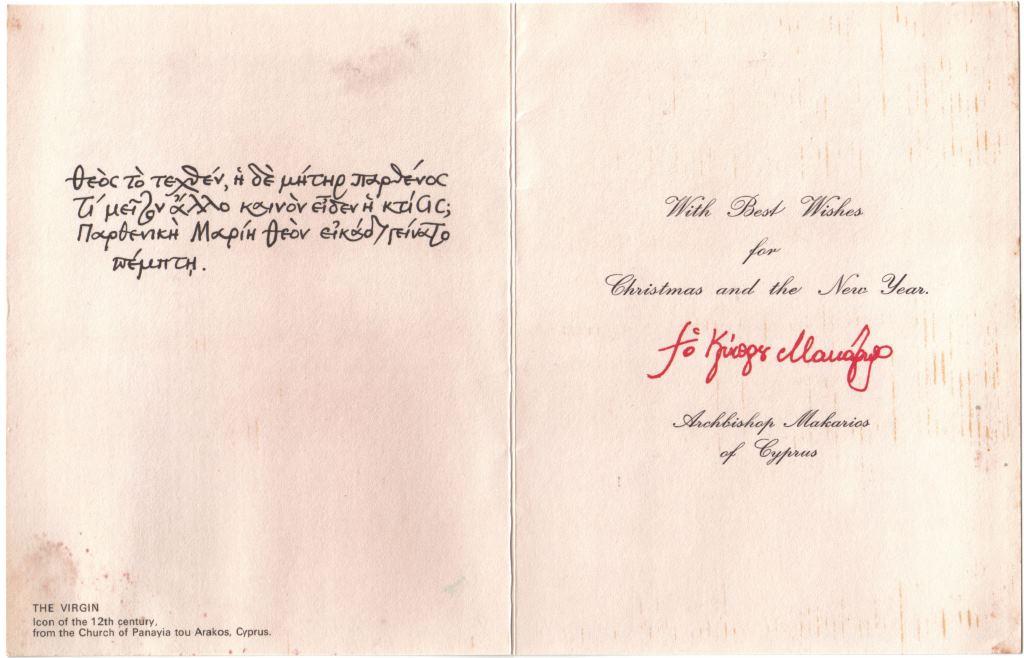 Θεὸς τὸ τεχθέν, ἡ δὲ μήτηρ παρθένος
Τί μεῖζον ἄλλο καινὸν εἶδεν ἡ κτίσις;
Παρθενικὴ Μαρίη Θεὸν εἰκάδι γείνατο
πέμπτῃ.
THE VIRGIN
Icon of the 12th century,
from the Church of Panayia tou Arakos, Cyprus.
With Best Wishes
for
Christmas and the New Year.
ὁ Κύπρου Μακάριος
Archbishop Makarios
of Cyprus